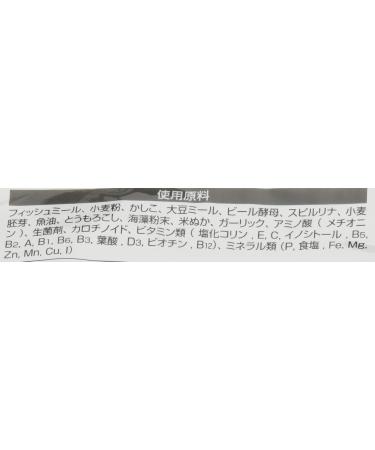 使用原料
フィッシュミール、小麦粉、かしこ、大豆ミール、ビール酵母、スピルリナ、小麦
胚芽、魚油、とうもろこし、海藻粉末、米ぬか、ガーリック、アミノ酸（メチオニ
ン）、生菌剤、カロチノイド、ビタミン類（塩化コリン , E, C, イノシトール , B5,
B2, A, B1, B6, B3, 葉酸 , D3, ビオチン , B12）、ミネラル類（P, 食塩 , Fe, Mg,
Zn, Mn, Cu, I）